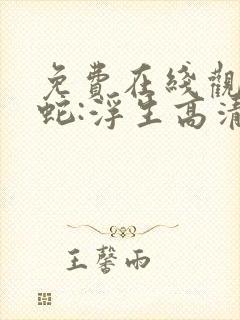 免費在綫觀
蛇:浮生高清
王馨雨